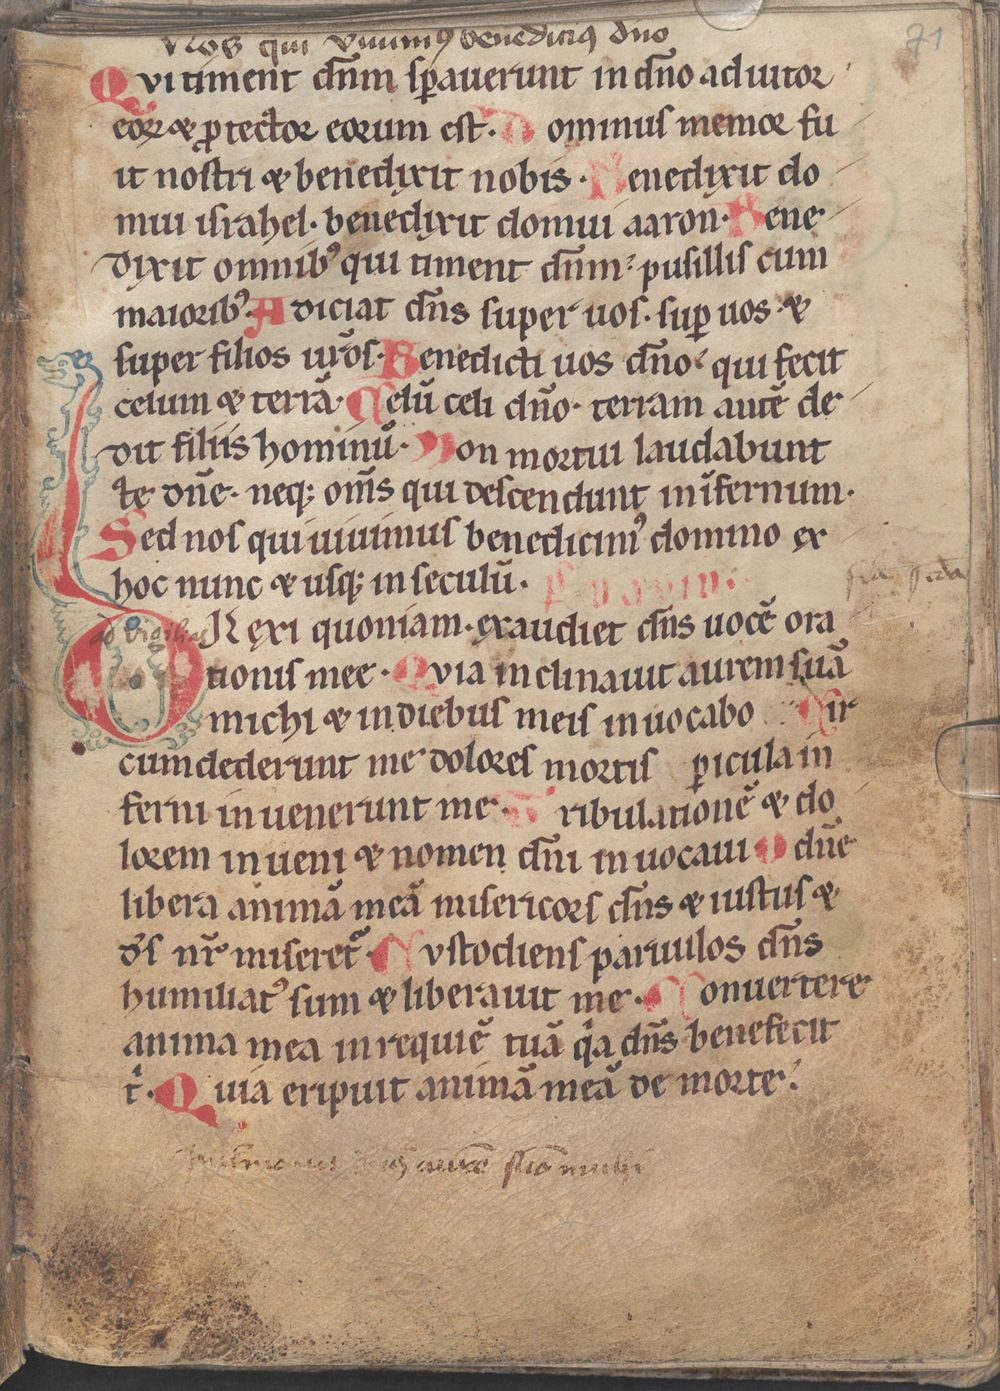 Nos qui viuimꝰ benedicimꝰ dn̄o
71
Qvi timent dn̄m sꝑauerunt in dn̄o adiutor
eoꝝ & ꝓtector eorum est. Dominus memor fu
it nostri & benedixit nobis. Benedixit do
mui israhel. benedixit domui aaron. Bene
dixit omnibꝰ qui timent dn̄m. pusillis cum
maioribꝰ. Adiciat dn̄s super uos. suꝑ uos &
super filios ur̄os. Benedicti uos dn̄o qui fecit
celum & terrā. Celū celi dn̄o. terram autē de
dit filiis hominū. Non mortui laudabunt
te dn̄e. neq; om̄s qui descendunt in īfernum.
Sed nos qui uiuimus benedicimꝰ domino ex
hoc nunc & usq; in seculū.
ad vigilias
Dilexi quoniam. exaudiet dn̄s uocē ora
tionis mee. Qvia inclinauit aurem suā
michi & in diebus meis inuocabo Cir
cumdederunt me dolores mortis ꝑicula in
ferni inuenerunt me. Tribulationē & do
lorem inueni & nomen dn̄i inuocaui O dn̄e
libera animā meā misericors dn̄s & iustus &
ds̄ nr̄ miseret᷑. Cvstodiens paruulos dn̄s
humiliatꝰ sum & liberauit me. Conuertere
anima mea in requiē tuā qa dn̄s benefecit
t. Quia eripuit animā meā de morte.